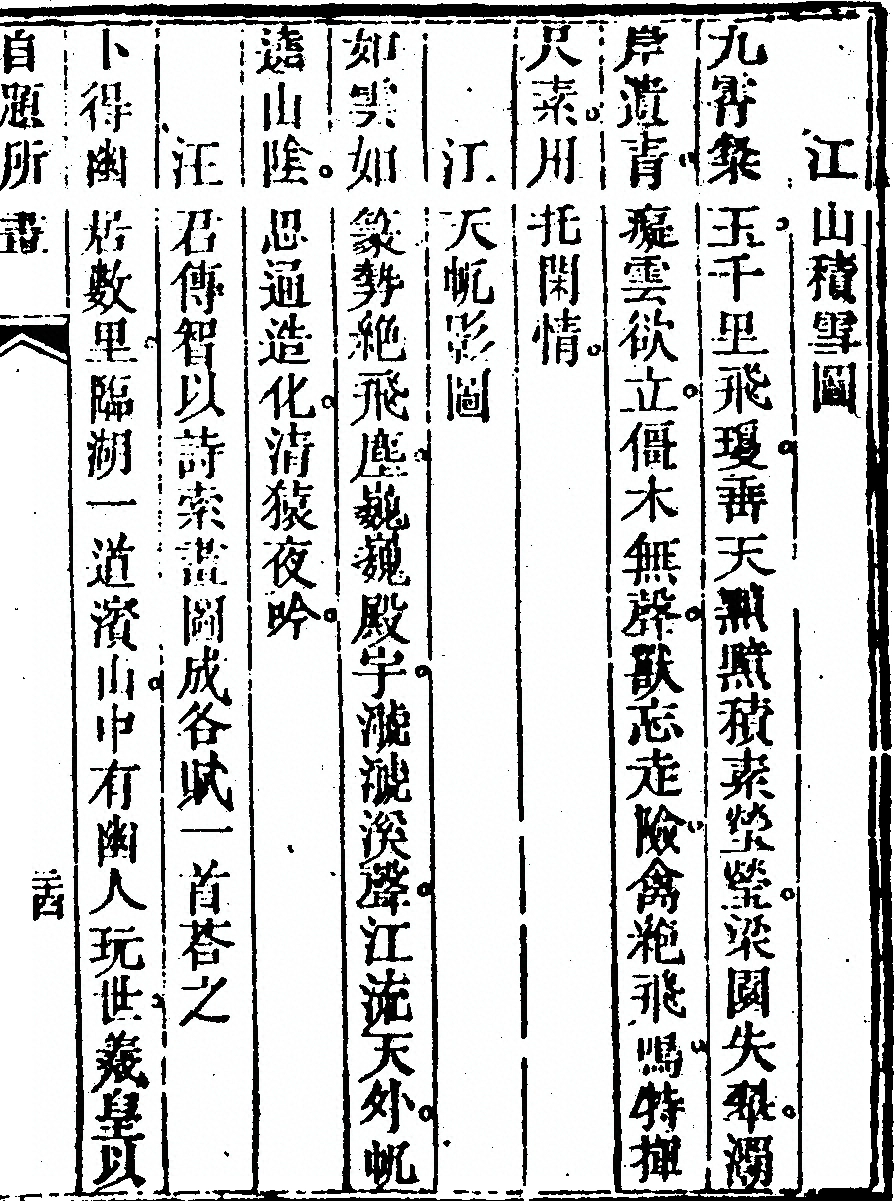 江山積雪圖
九霄粲玉千里飛瓊垂天積素瑩瑩梁園失翠灞
岸遺青癡雲欲立僵木無聲獸忘走險禽絕飛鳴特揮
尺素用托閑情
江天帆影圖
如雲如篆勢絕飛塵巍巍殿宇㶁㶁溪聲江流天外帆
遶山陰思通造化清猿夜吟
汪君傳智以詩索畫圖成各賦一首荅之
卜得幽居數里臨湖一道濱山中有幽人玩世羲皇以
自題所畫